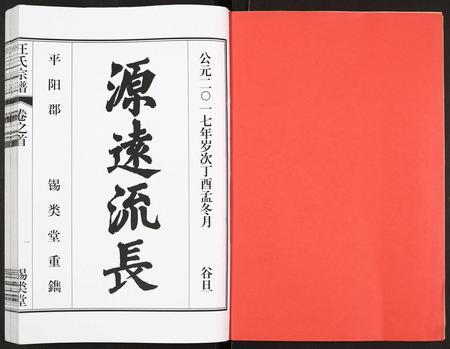 公元二〇一七年岁次丁酉孟冬月 谷旦
源遠流長
平阳郡 锡类堂重鐫
汪氏宗譜 卷之首 一 锡类堂